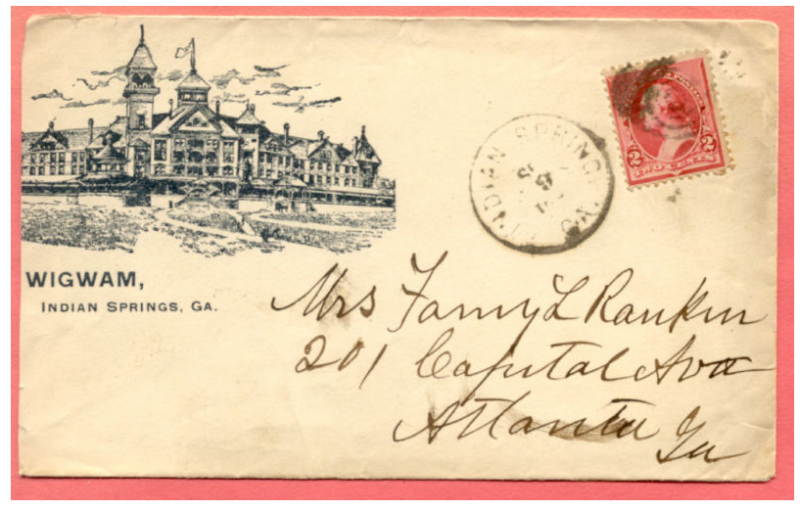 WIGWAM,
INDIAN SPRINGS, GA.
INDIAN SPRING GA.
2 2
TWO CENTS
Mrs Fanny L Rankin
201 Capital Ave
Atlanta Ga